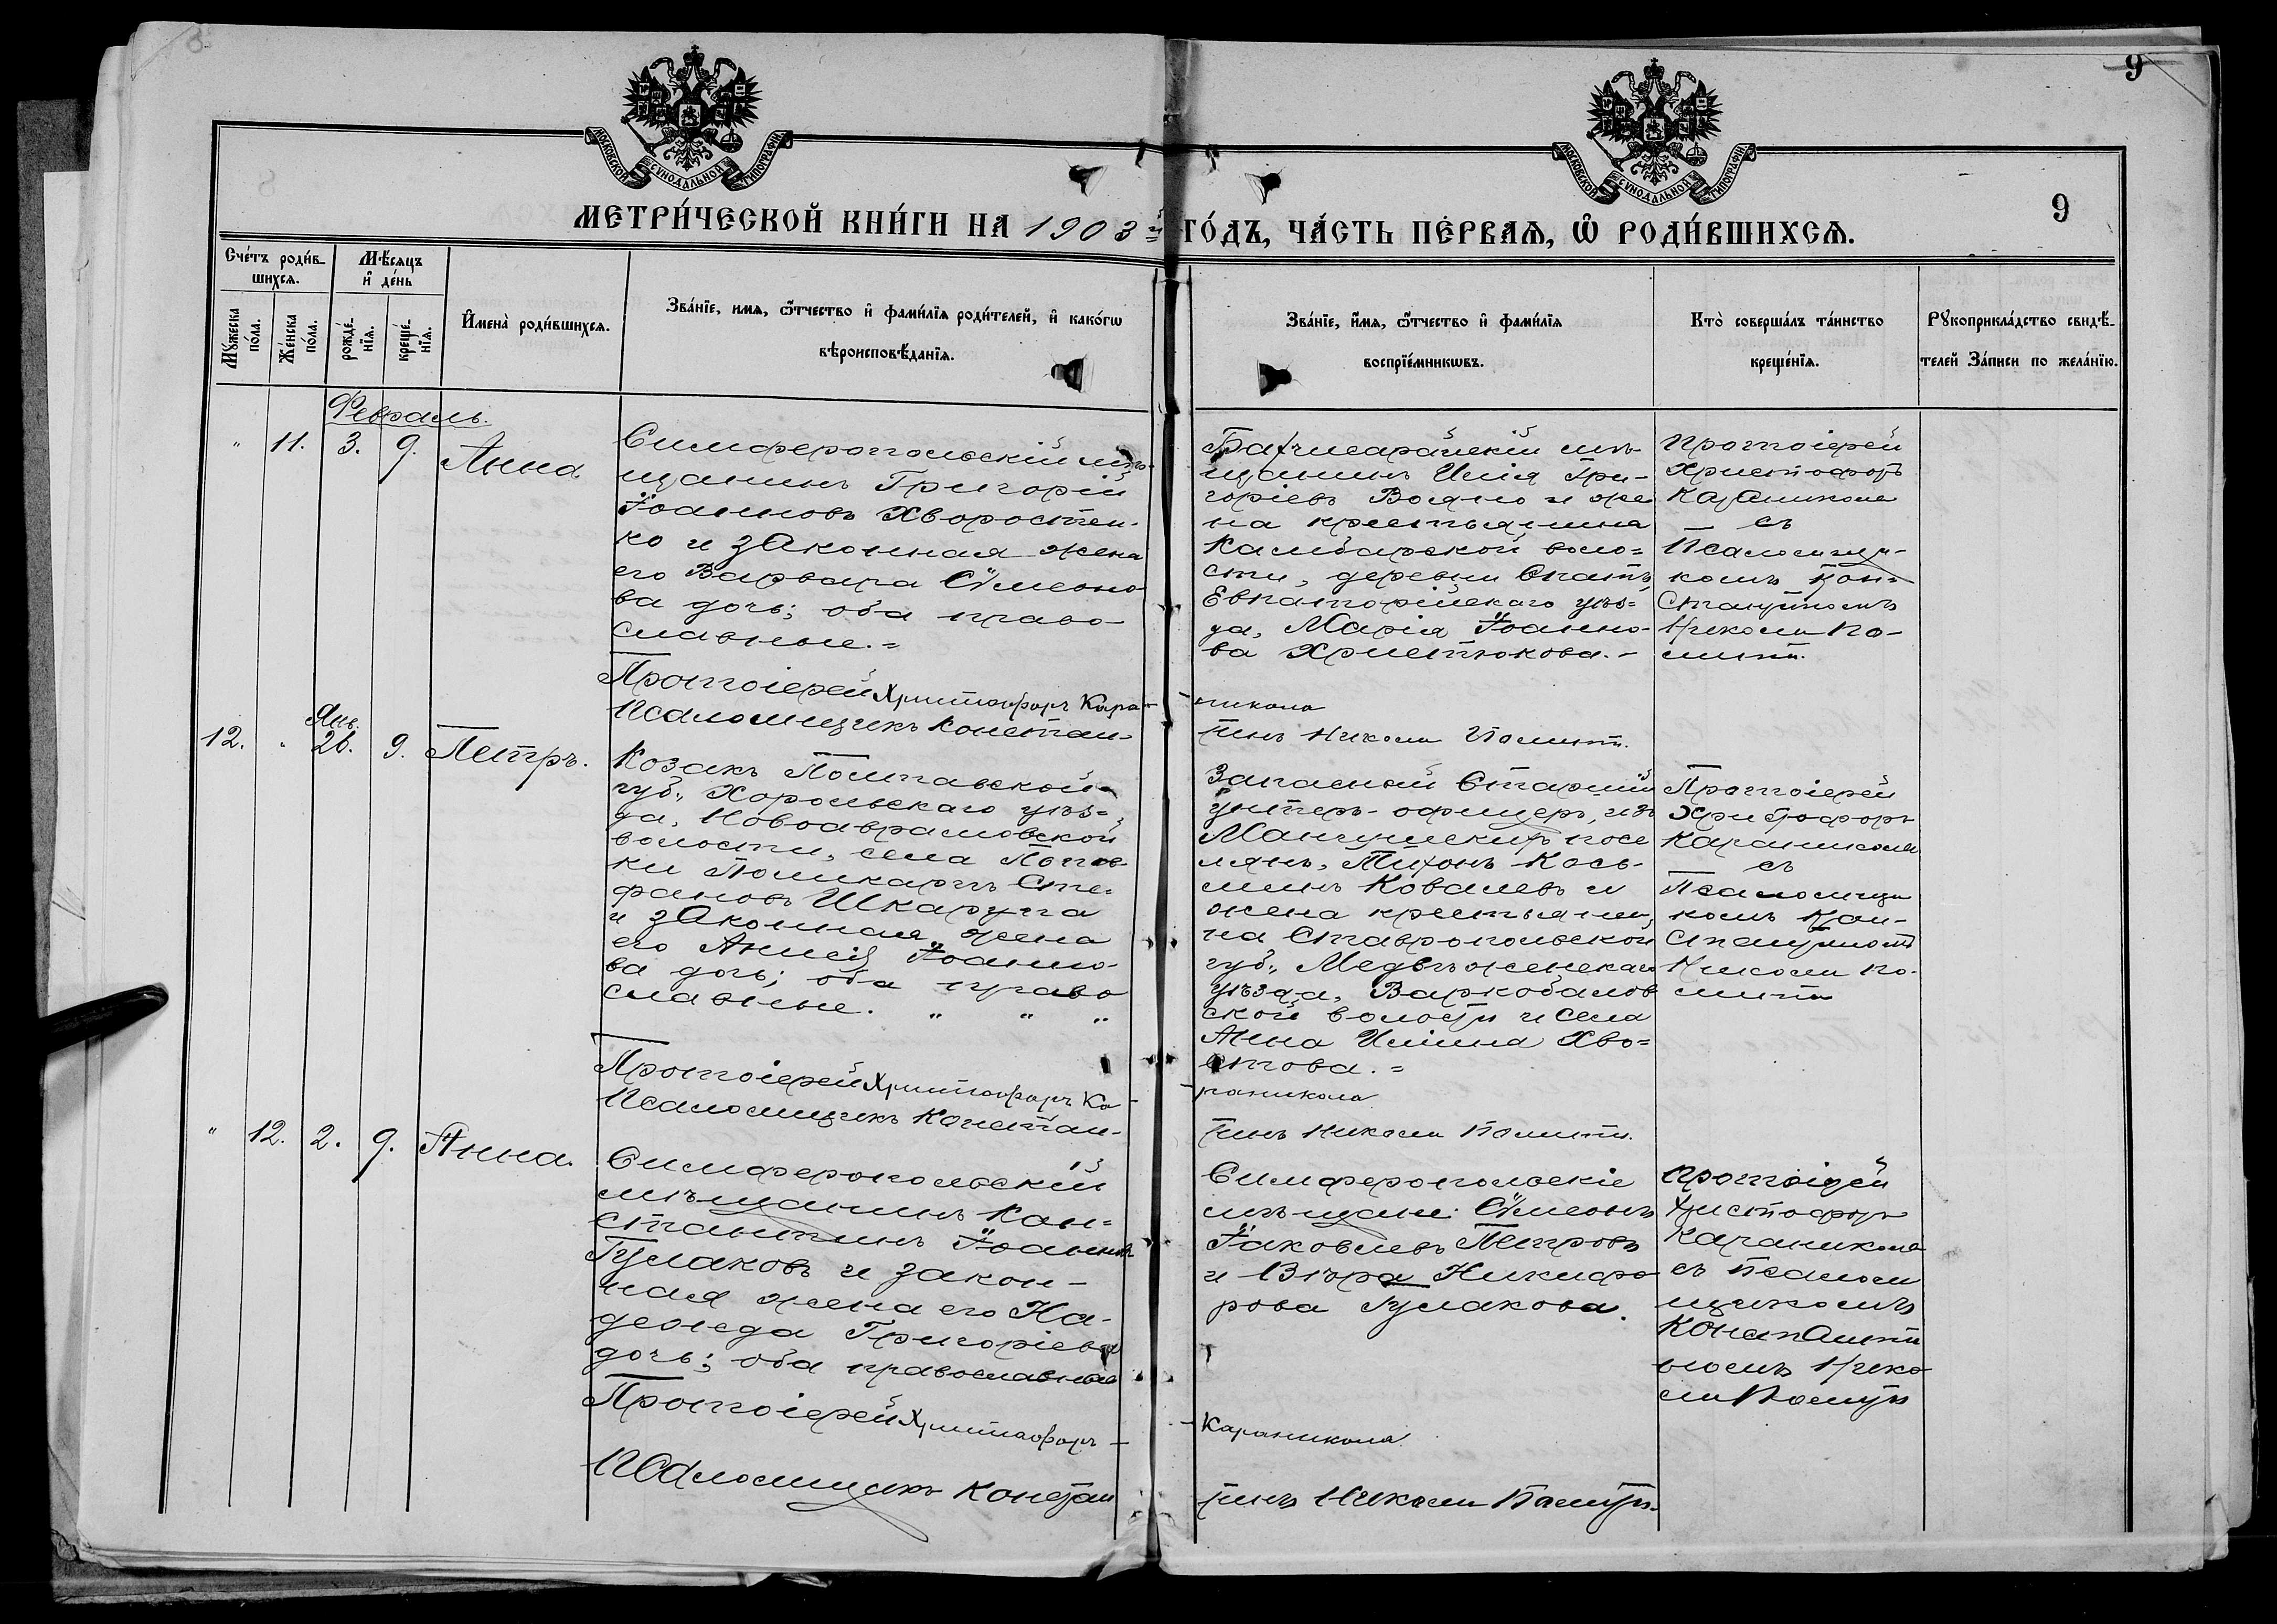 9
МОСКОВСКОЙ СѴНОДАЛЬНОЙ ТИПОГРАФІИ
МОСКОВСКОЙ СѴНОДАЛЬНОЙ ТИПОГРАФІИ
МЕТРИ́ЧЕСКОЙ КНИ́ГИ НА 1903й ГО́ДЪ, ЧА́СТЬ ПЕ́РВАѦ, Ѡ РОДИ́ВШИХСѦ.
9
Сче́тъ роди́в-
шихсѧ.
Мѣ́сѧцъ
и де́нь
Мꙋ́жеска
по́ла.
Же́нска
по́ла.
рожде́-
нїѧ.
креще́-
нїѧ.
Имена̀ роди́вшихсѧ.
Зва́нїе, имѧ, ѻ҆́тчество и фами́лїѧ роди́телей, и како́гѡ
вѣроисповѣ́данїѧ.
Зва́нїе, и́мѧ, ѻ҆́тчество и фами́лїѧ
воспрїе́мникѡвъ.
Кто̀ соверша́лъ та́инство
креще́нїѧ.
Рꙋкоприкла́дство свидѣ́-
телей За́писи по жела́нїю.
Февраль.
" 11. 3. 9. Анна
Симферопольскій мѣ-
щанинъ Григорій
Іоанновъ Хворостен-
ко и законная жена
его Варвара Сѵмеоно
ва дочь; оба право-
славные.=
Бахчисарайскій мѣ-
щанинъ Илія Гри-
горіевъ и же
на крестьянина
Камбарской воло=
сти, деревни Спатъ
Евпаторійскаго уѣз=
да, Марія Іоанно-
ва Христюкова.-
Протоіерей
Христофоръ
Караникола
съ
Псаломщи-
комъ Кон=
стантиномъ
Николи По-
лити.
Протоіерей Христофоръ Кара-
никола
Псаломщикъ Констан-
тинъ Николи Полити.
12. " Янв. 26. 9. Петръ.
Козакъ Полтавской
губ., Хорольскаго уѣз=
да, Новоаврамовской
волости, села Попов-
ки Поликарпъ Сте=
фановъ Шкарупа
и законная жена
его Анисія Іоанно-
ва дочь; оба право
славные. " " "
Запасный Старшій
унтеръ-офицеръ, изъ
Мангушскихъ посе
лянъ, Тихонъ Кось-
минъ Ковалевъ и
жена крестьяни-
на Ставропольской
губ., Медвѣженскаго
уѣзда,
ской волости и села
Анна Илiина Хво=
стова.=
Протоіерей
Христофоръ
Караникола
съ
Псаломщи
комъ Кон-
стантиномъ
Николи По-
лити
Протоіерей Христофоръ Ка-
раникола
Псаломщикъ Констан-
тинъ Николи Полити.
" 12. 2. 9. Анна.
Симферопольскій
мѣщанинъ Кон=
стантинъ Іоанновъ
Гулаковъ и закон-
ная жена его На-
дежда Григоріева
дочь; оба православные
Симферопольскіе
мѣщане: Сѵмеонъ
Іаковлевъ Петровъ
и Вѣра Никифо-
рова Гулакова.
Протоіерей
Христофоръ
Караникола
съ псалом
щикомъ
Константи
номъ Нико
ли Полити
Протоіерей Христофоръ -
Караникола
Псаломщикъ Констан
тинъ Николи Полити.